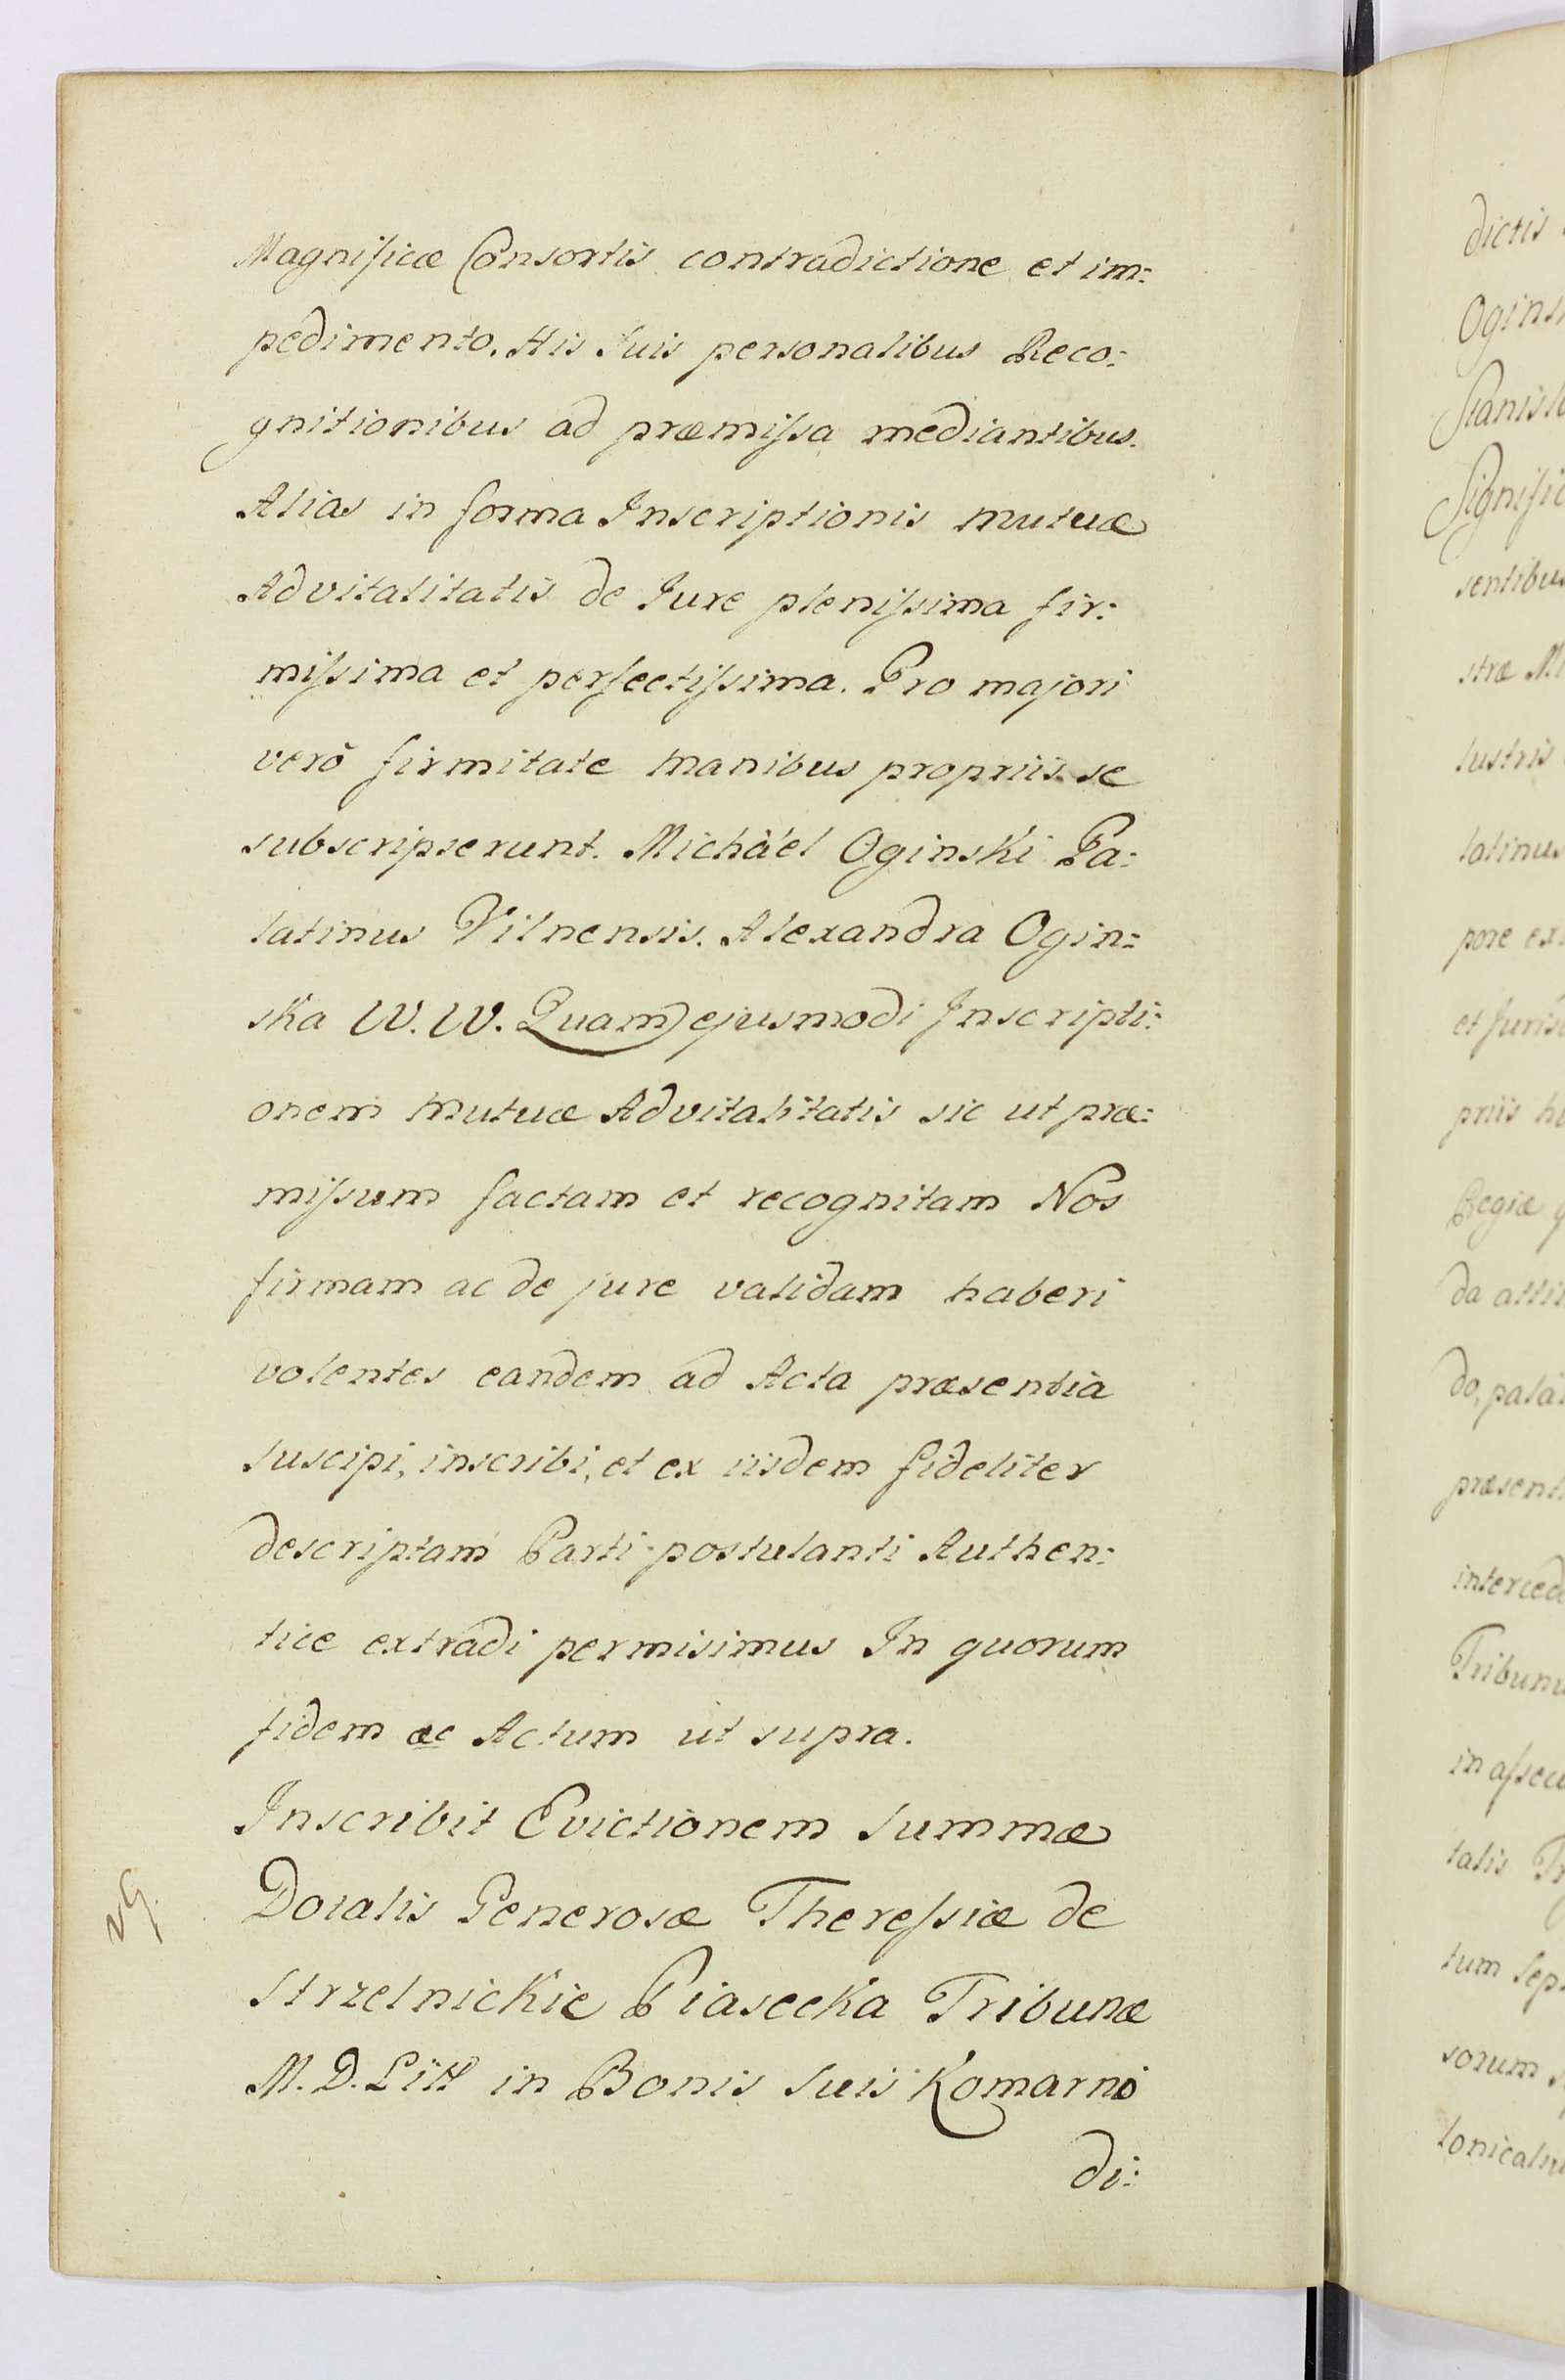 Magnificæ Consortis contradictione et im:
pedimento. His suis personalibus Reco:
gnitionibus ad præmissa mediantibus.
Alias in forma Inscriptionis mutuæ
Advitalitatis de Iure plenissima fir:
missima et perfectissima. Pro majori
verò firmitate manibus propriis se
subscripserunt. Michaël Oginski Pa:
latinus Vilnensis. Alexandra Ogin:
ska W. W. Quam ejusmodi Inscripti:
onem mutuæ Advitalitatis sic ut præ:
missum factam et recognitam Nos
firmam ac de jure validam haberi
volentes eandem ad Acta præsentia
suscipi, inscribi, et ex iisdem fideliter
descriptam Parti postulanti Authen:
tice extradi permisimus In quorum
fidem ac Actum ut supra.
Inscribit Evictionem summæ
Dotalis Generosæ Theressiæ de
Strzelnickie Piasecka Tribunæ
M. D. Litt in Bonis suis Komarno
di:
dictis
Oginsk
Stanisla
Significa
sentibus
stræ M
lustris
latinus
pore ex
et Juris
priis
Regiæ
da atti
do, palà
præsent
interced
Tribunu
in assecu
talis
tum Sep
sorum
lonical